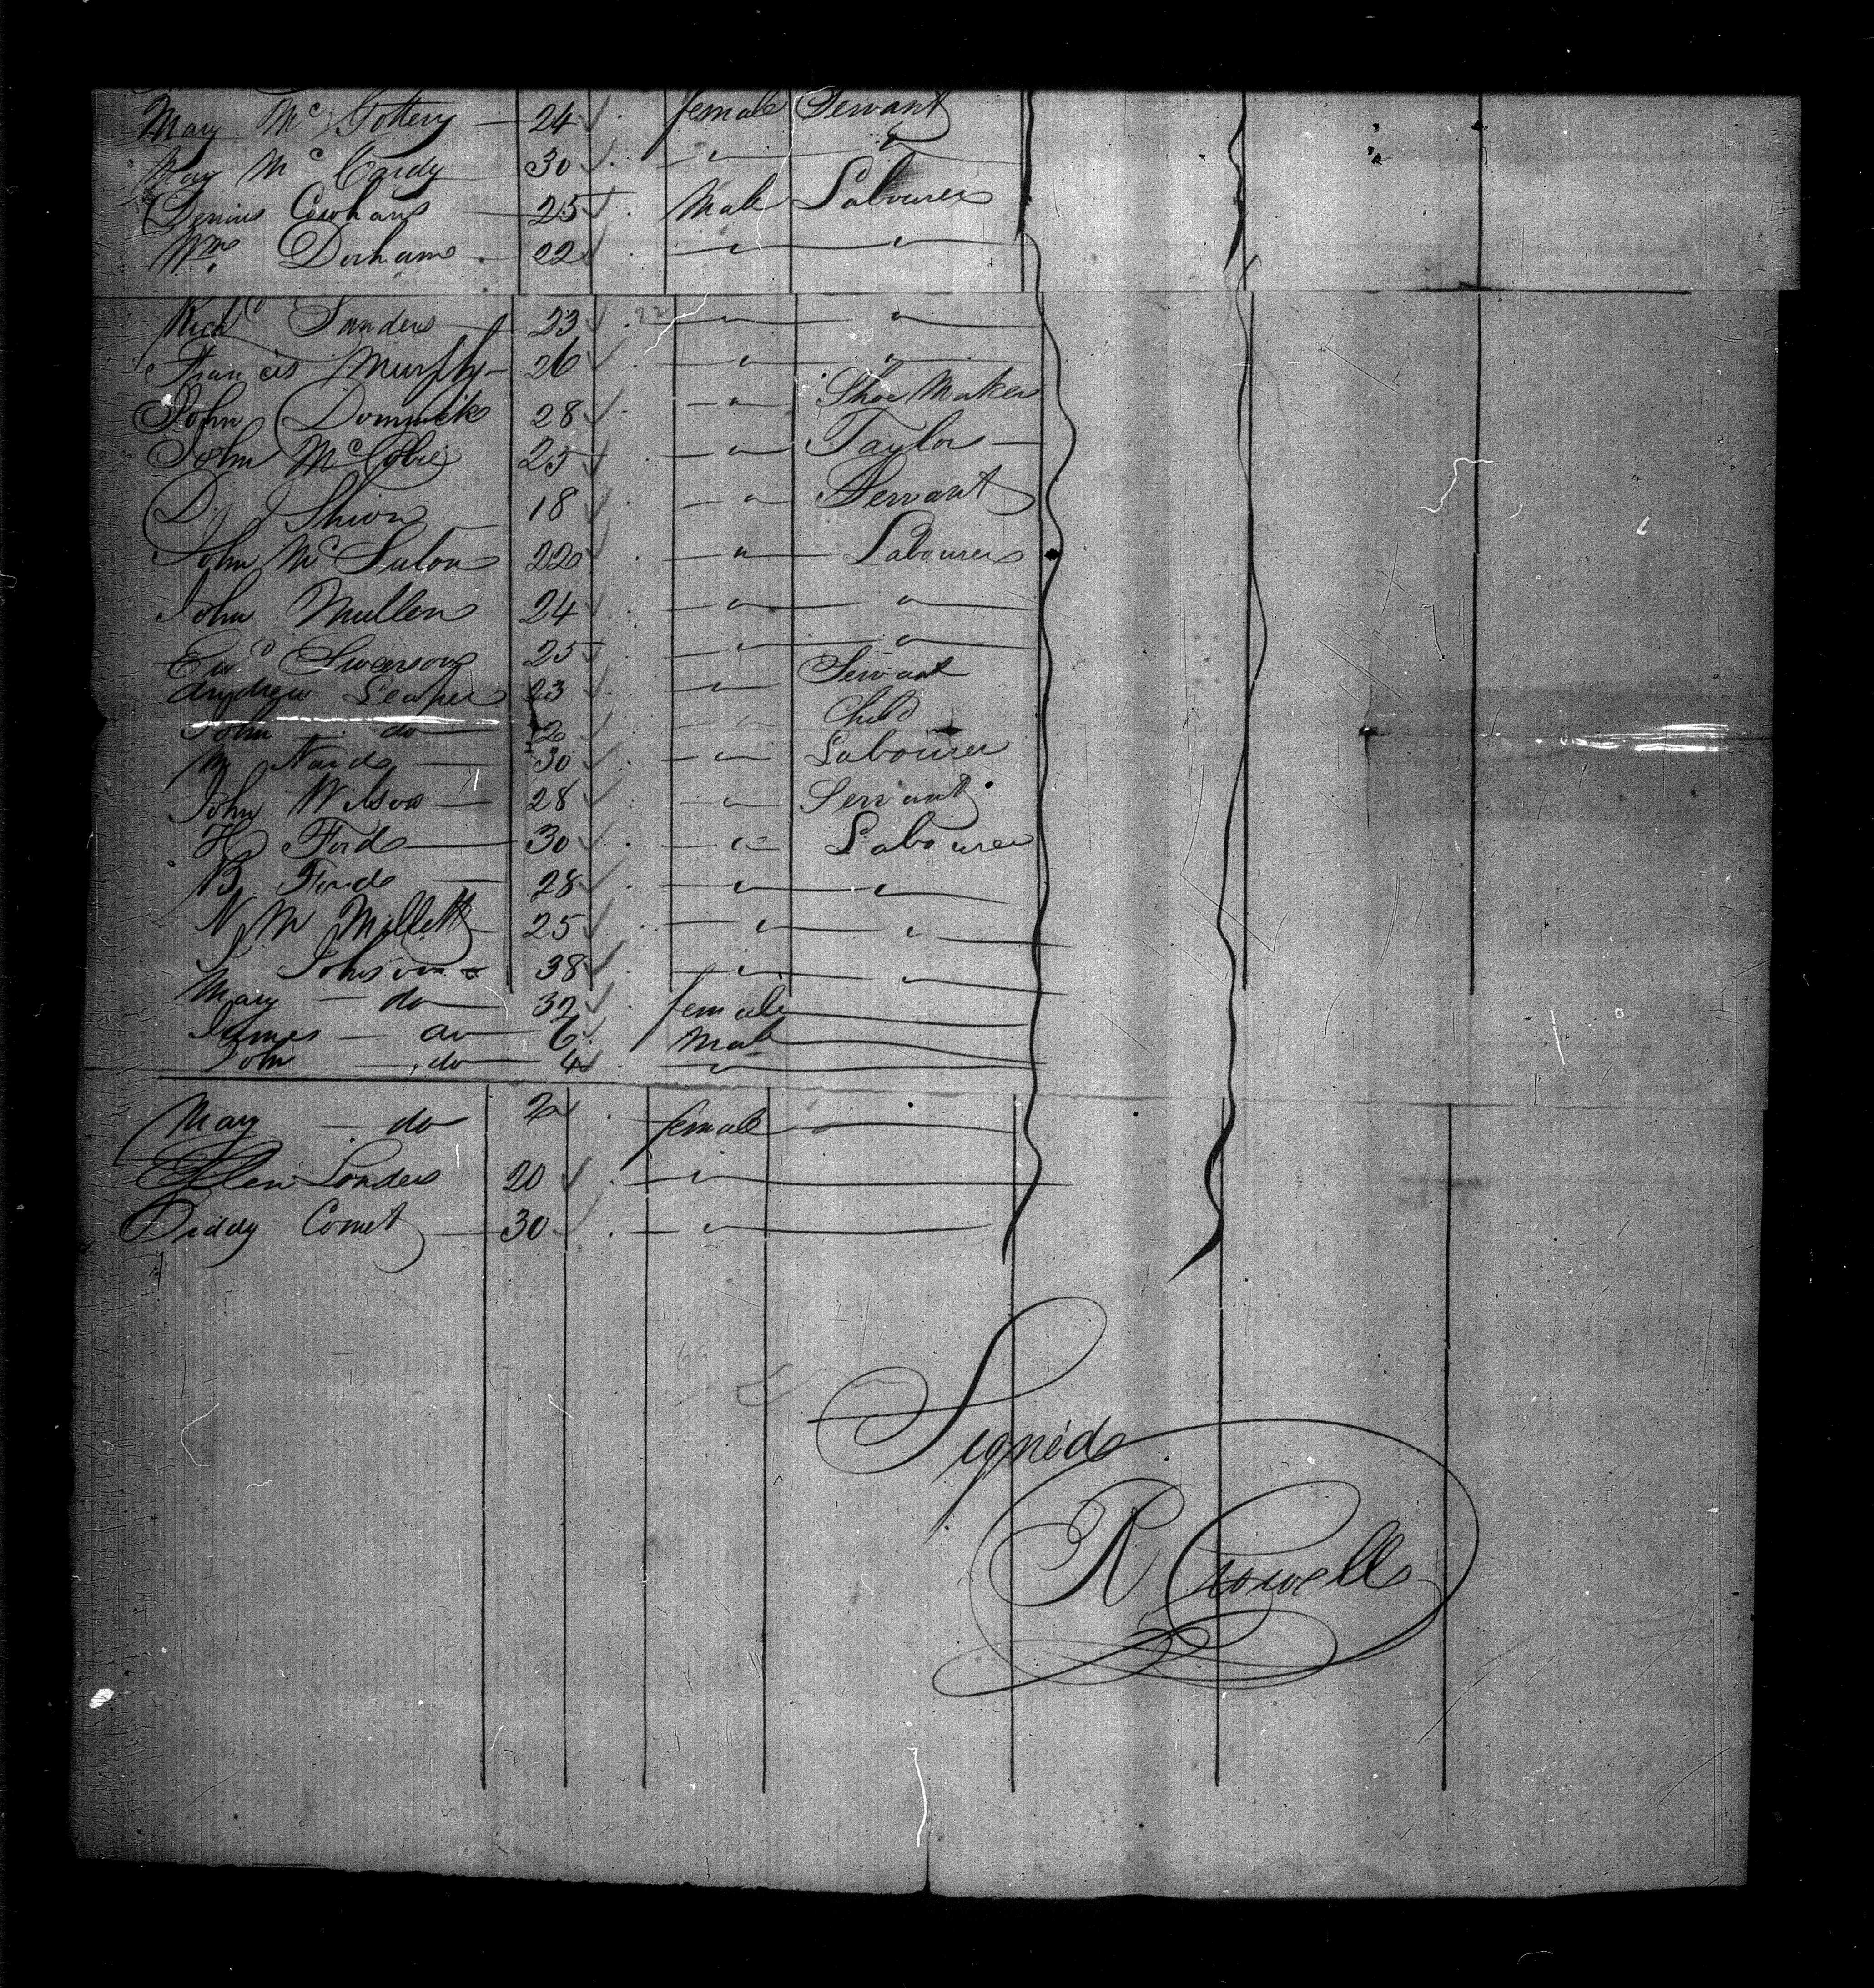 Mary Mc Gottery — 24 female Servant
Mary Mc Cardy 30 — " — "
Dennis Cowhans 25 Male Labourer
Wm. Dorhams 22 — " — "
Richd Sanders 23 22 — " — "
Francis Murphy 26 — " — "
John Dominick 28 — " — Shoe Maker
John Mc 25 — " — Taylor —
D. Shion 18 — " Servant
John Mc Sulon 22 — " — Labourer
John Mullen 24 — " — "
Ewd Swenson 25 — " — "
Andrew Leaper 23 — " — Servant
John — do — 20 — " — Child
M Nard — 30 — " — Labourer
John Wilson — 28 — " — Servant
H Ford — 30 — " — Labourer
B Ford — 28 — " — "
N M Millett 25 — " — "
Johnson 38 — " — "
Mary — do — 32 female
James — do — 6 Male
John — do — 4 — " —
Mary — do 2 female
Ellen Sonders 20 — " —
Biddy Comet — 30 — " —
66
Signed
R Crowell